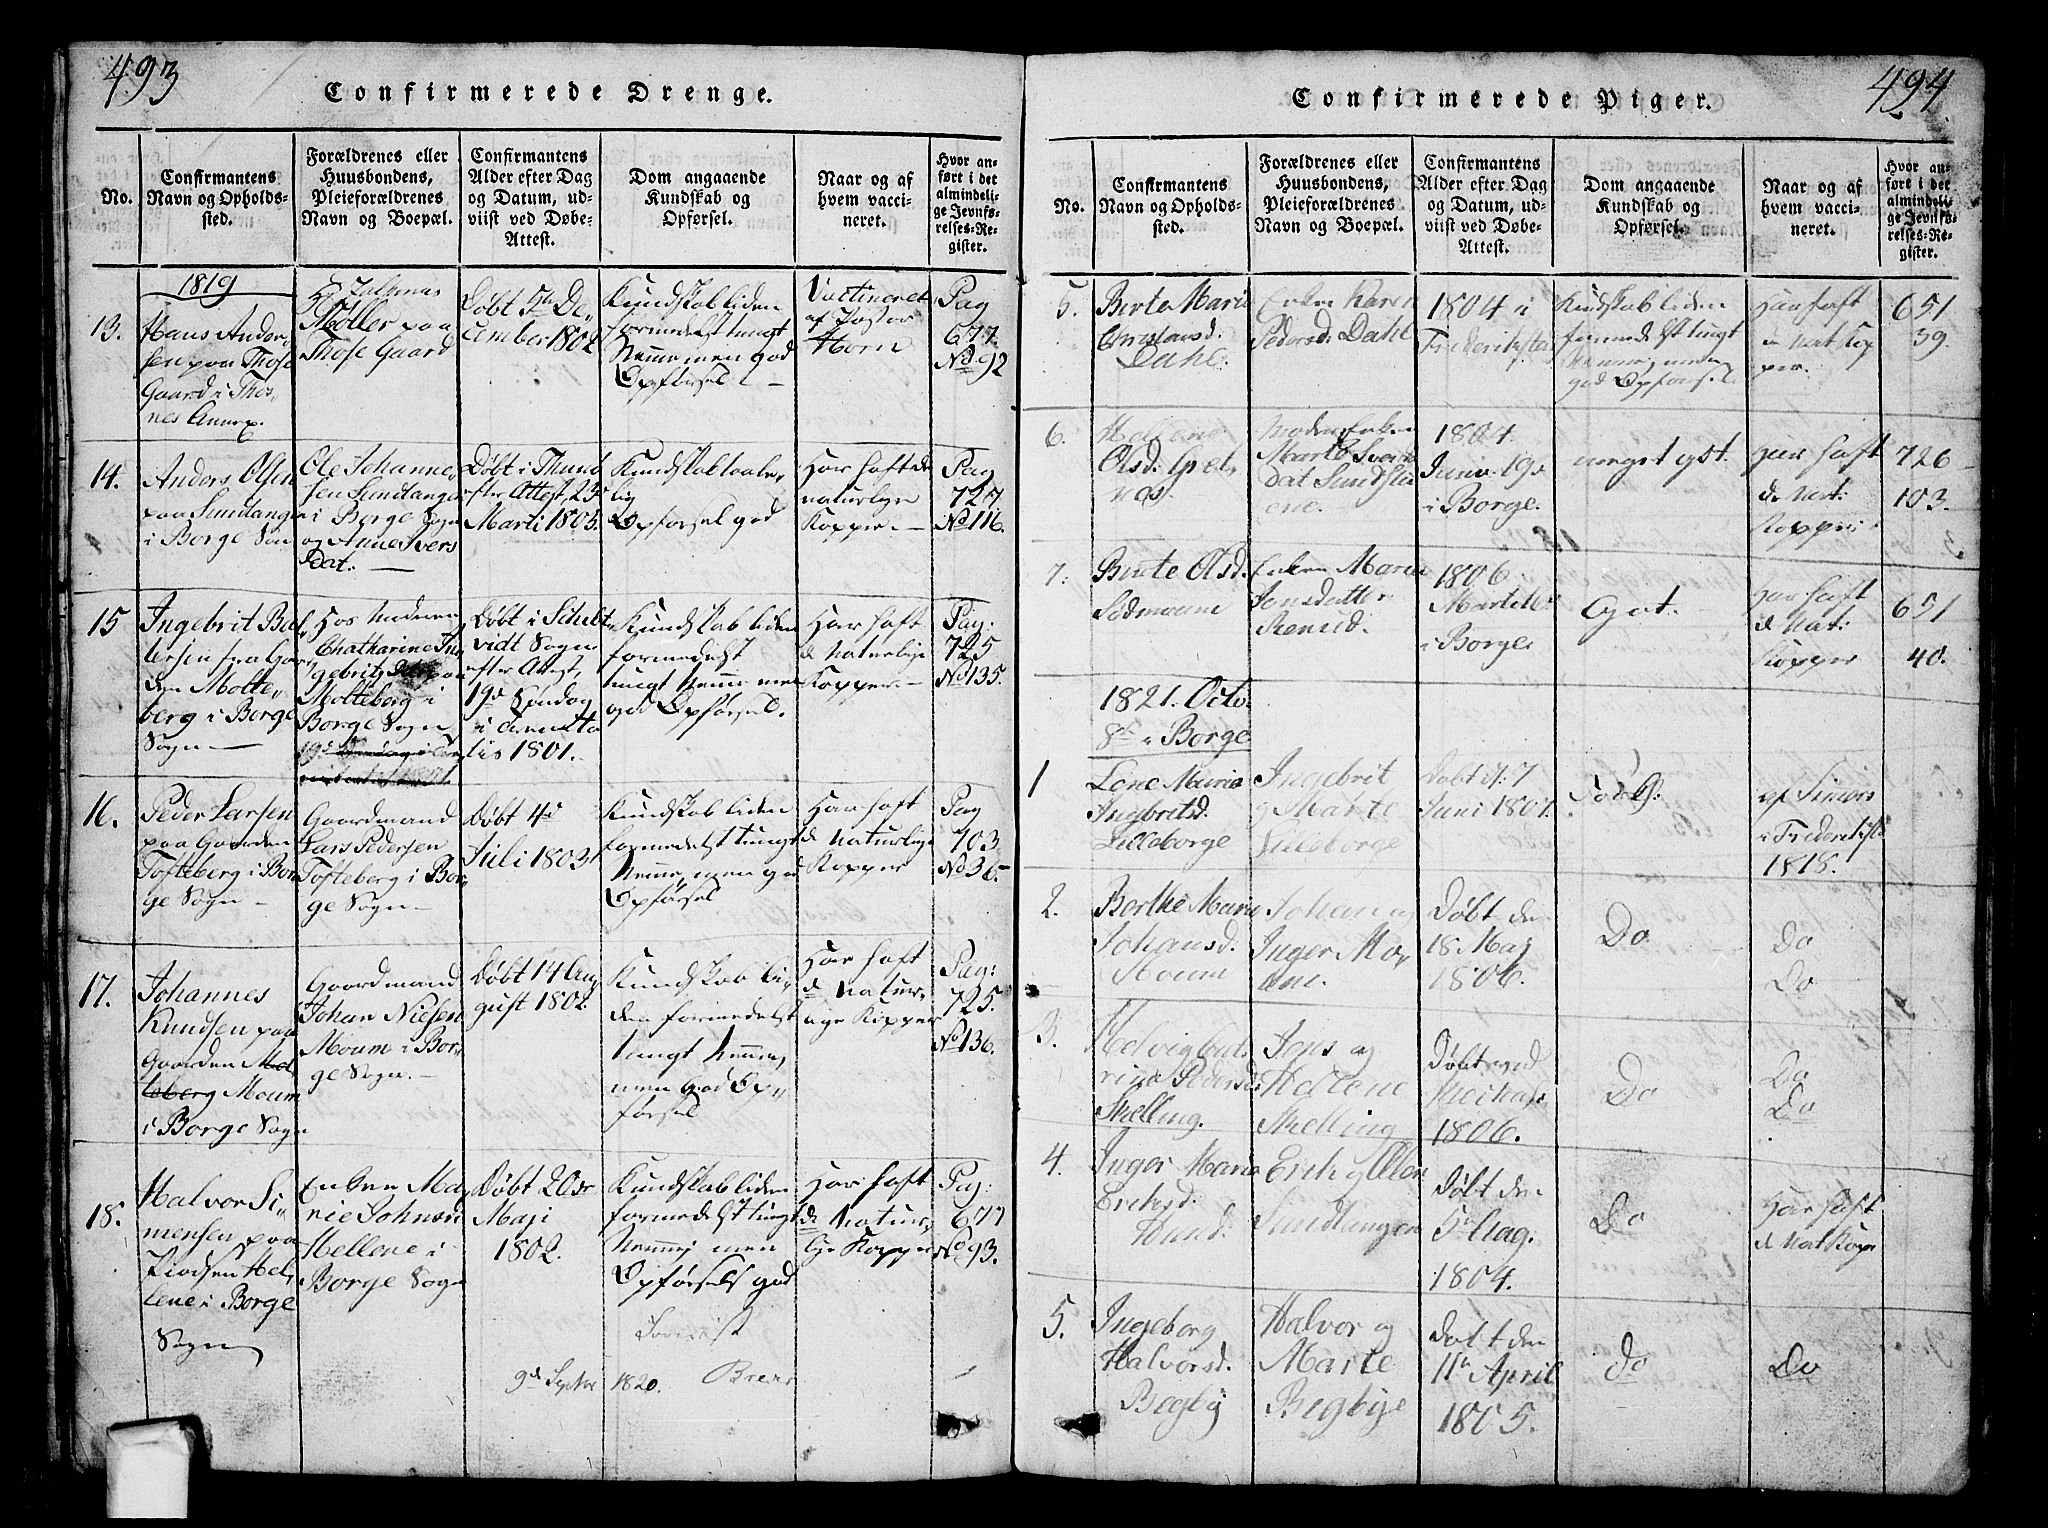 493
Confirmerede Drenge.
No.
Confirmantens
Navn og Opholds-
sted.
Forældrenes eller
Huusbondens,
Pleieforældrenes
Navn og Boepæl.
Confirmantens
Alder efter Dag
og Datum, ud-
viist ved Døbe-
Attest.
Dom angaaende
Kundskab og
Opførsel.
Naar og af
hvem vacci-
neret.
Hvor an-
ført i det
almindeli-
ge Jevnfø-
relses-Re-
gister.
1819
13.
Hans Ander-
sen paa Those
Gaard i Thos-
nes Annex.
Møller paa
Those Gaard
Døbt 5te De-
cember 1802
Kundskab liden
formedelst tungt
Nemme men god
Opførsel
Vaccineret
af Pastor
Horn
Pag
677
No 92
14.
Anders Olsen
paa Sundangen
i Borge Sogn
Ole Johanne-
sen Sundangen
i Borge Sogn
og Anne Ivers
Dat:
Døbt i Thund
efter Attest 23de
Marti 1805.
Kundskab taale-
lig
Opførsel god
Har haft de
naturlige
Kopper
Pag
727
No 116.
15
Ingebrit
fra Gaar-
den Molte-
berg i Borge
Sogn
Hos Moderen
Chatharine In-
gebrits paa
Molteberg i
Borge Sogn
Døbt i Schilt-
vidt Sogn
efter Attest,
19de Søndag
i Trinita-
tis 1801.
Kundskab liden
formedelst
tungt Nemme men
god Opførsel.
Har haft
de Naturlige
Kopper
Pag:
725
No 135.
16.
Peder Larsen
paa Gaarden
Tofteberg i Bor-
ge Sogn
Gaardmand
Lars Pedersen
Tofteberg i Bor-
ge Sogn
Døbt 4de
Juli 1803
Kundskab liden
formedelst tungt
Nemme, men god
Opførsel
Har haft
de Naturlige
Kopper
Pag
703
No 36
17.
Johannes
Knudsen paa
Gaarden Mol-
teberg Moum
i Borge Sogn
Gaardmand
Johan Nielsen
Moum i Bor-
ge Sogn.
Døbt 14 Au-
gust 1802.
Kundskab li-
den formedelst
tungt Nemme,
men god Op-
førsel
Har haft
de Natur-
lige Kopper
Pag:
725.
No 136.
18.
Halvor Si-
mensen paa
Pladsen Hel-
lene i Borge
Sogn
Enken Ma-
rie Johnsd
Hellene i
Borge Sogn
Døbt 20de
Maji
1802.
Kundskab liden
formedelst tungt
Nemme men
Opførsels god
Har haft
de Natur-
lige Kopper
Pag:
677
No 93.
9de Septbr 1820.
494
Confirmerede Piger.
No.
Confirmantens
Navn og Opholds-
sted.
Forældrenes eller
Huusbondens,
Pleieforældrenes
Navn og Boepæl.
Confirmantens
Alder efter Dag
og Datum, ud-
viist ved Døbe-
Attest.
Dom angaaende
Kundskab og
Opførsel.
Naar og af
hvem vacci-
neret.
Hvor an-
ført i det
almindeli-
ge Jevnfø-
relses-Re-
gister.
5.
Berte Marie
Christansd.
Dahl.
Enken Karen
Pedersd: Dahl
1804 i
Frederikstad
Kundskab liden
formedelst tungt
Nemme, men
god Opførsel
Har haft
de Nat Kop
per.
651
39.
6.
Hellene
Olsd.
Moder Enken
Marte
1804.
Juni 19de
i Borge.
Har haft
de Nat:
Kopper
726
103.
7.
Berte Olsd.
Enken Maren
Jonsdatter
1806
i Borge
Har haft
de Nat:
Kopper
651
40.
1821. Octo.
8de i Borge
1
Lene Maria
Ingbretsd.
Lilleborge
Ingebrit
og Marte
Lilleborge
Døbt d. 7
Juni 1807.
i Frederiksst
1818.
2.
Berthe Maria
Johansd.
Moum
Johan og
Inger Mo-
Døbt den
18 Maj
1806.
Do
Do
Do
3.
Skelling.
Jens og
Hellene
Skelling
Døbt ved
1806.
Do
Do
Do
4.
Inger Maria
Eriksd.
Erik og Ellen
Sundlangen
Døbt den
1804.
Do
Har haft
de Nat Kopp
5.
Ingeborg
Halvorsd.
Begby
Halvor og
Marte
Begbye
Døbt den
11te April
1805.
do
Do